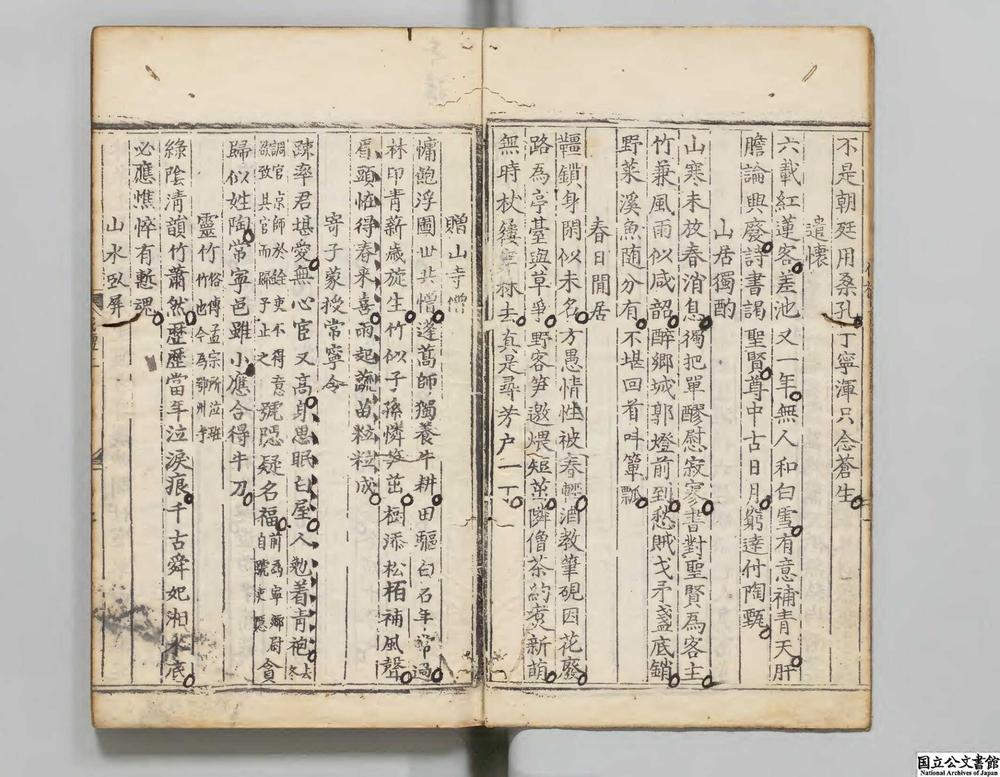 不是朝廷用桑孔丁寧渾只念蒼生
遣懷
六載紅蓮客差池又一年無人和白雪有意補青天肝
膽論興廢詩書謁聖賢尊中古日月窮達付陶甄
山居獨酌
山寒未放春消息獨把單醪慰寂寥書對聖賢為客主
竹兼風雨似咸韶醉鄉城郭燈前到愁賊戈矛盞底銷
野菜溪魚隨分有不堪回首叫簞瓢
春日閒居
韁鎖身閒似未名方愚情性被春輕酒教筆硯因花廢
路為亭臺與草爭野客笋邀煨短茁隣僧茶約煮新萌
無時杖縷 林去真是尋芳户一丁
贈山寺僧
慵飽浮圖世共憎蓬蒿師獨養牛耕田驅白石年 過
林印青薪歲旋生竹似子孫憐笋茁樹添松栢補風聲
眉頭恠得春來喜雨起蔬苗粒粒成
寄子蒙授常寧令
踈率君堪愛無心宦又高身思眠白屋人勉着青袍去冬
調官京師於銓吏不得意
欲致其官而歸子止之號隱疑名福前為卓鄉尉
自號吏隱貪
歸似姓陶常寧邑雖小應合得牛刀
靈竹俗傳孟宗所泣班
竹也今為鄂州寺
綠陰清韻竹蕭然歷歷當年泣淚痕千古舜妃湘水底
必應憔悴有慙魂
山水臥屏
国立公文書館
National Archives of Japan